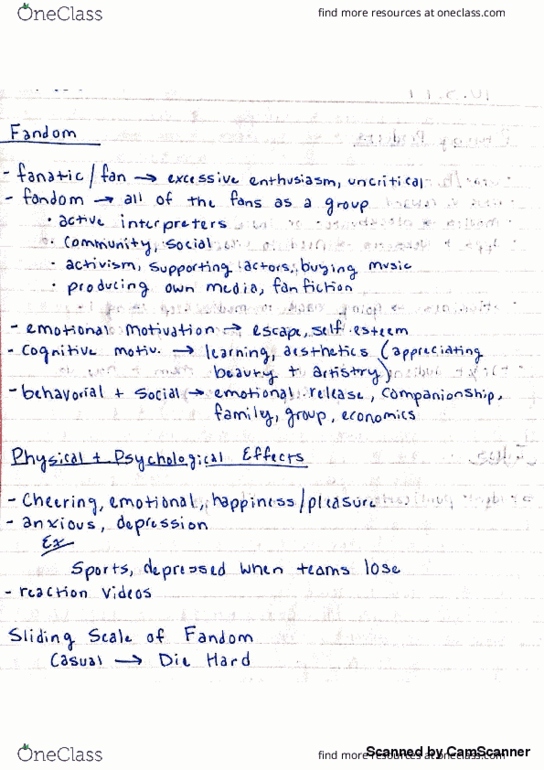 OneClass
find more resources at oneclass.com
Fandom
- fanatic/fan → excessive enthusiasm, uncritical
- fandom → all of the fans as a group
• active interpreters
• community, social
• activism, supporting actors, buying music
• producing own media, fanfiction
- emotional motivation → escape, self esteem
- cognitive motiv. → learning, aesthetics (appreciating
beauty + artistry)
- behavorial + social → emotional release, companionship,
family, group, economics
Physical + Psychological Effects
- Cheering, emotional, happiness/pleasure
- anxious, depression
Ex
Sports, depressed when teams lose
- reaction videos
Sliding Scale of Fandom
Casual → Die Hard
OneClass
find more resources at oneclass.com
Scanned by CamScanner